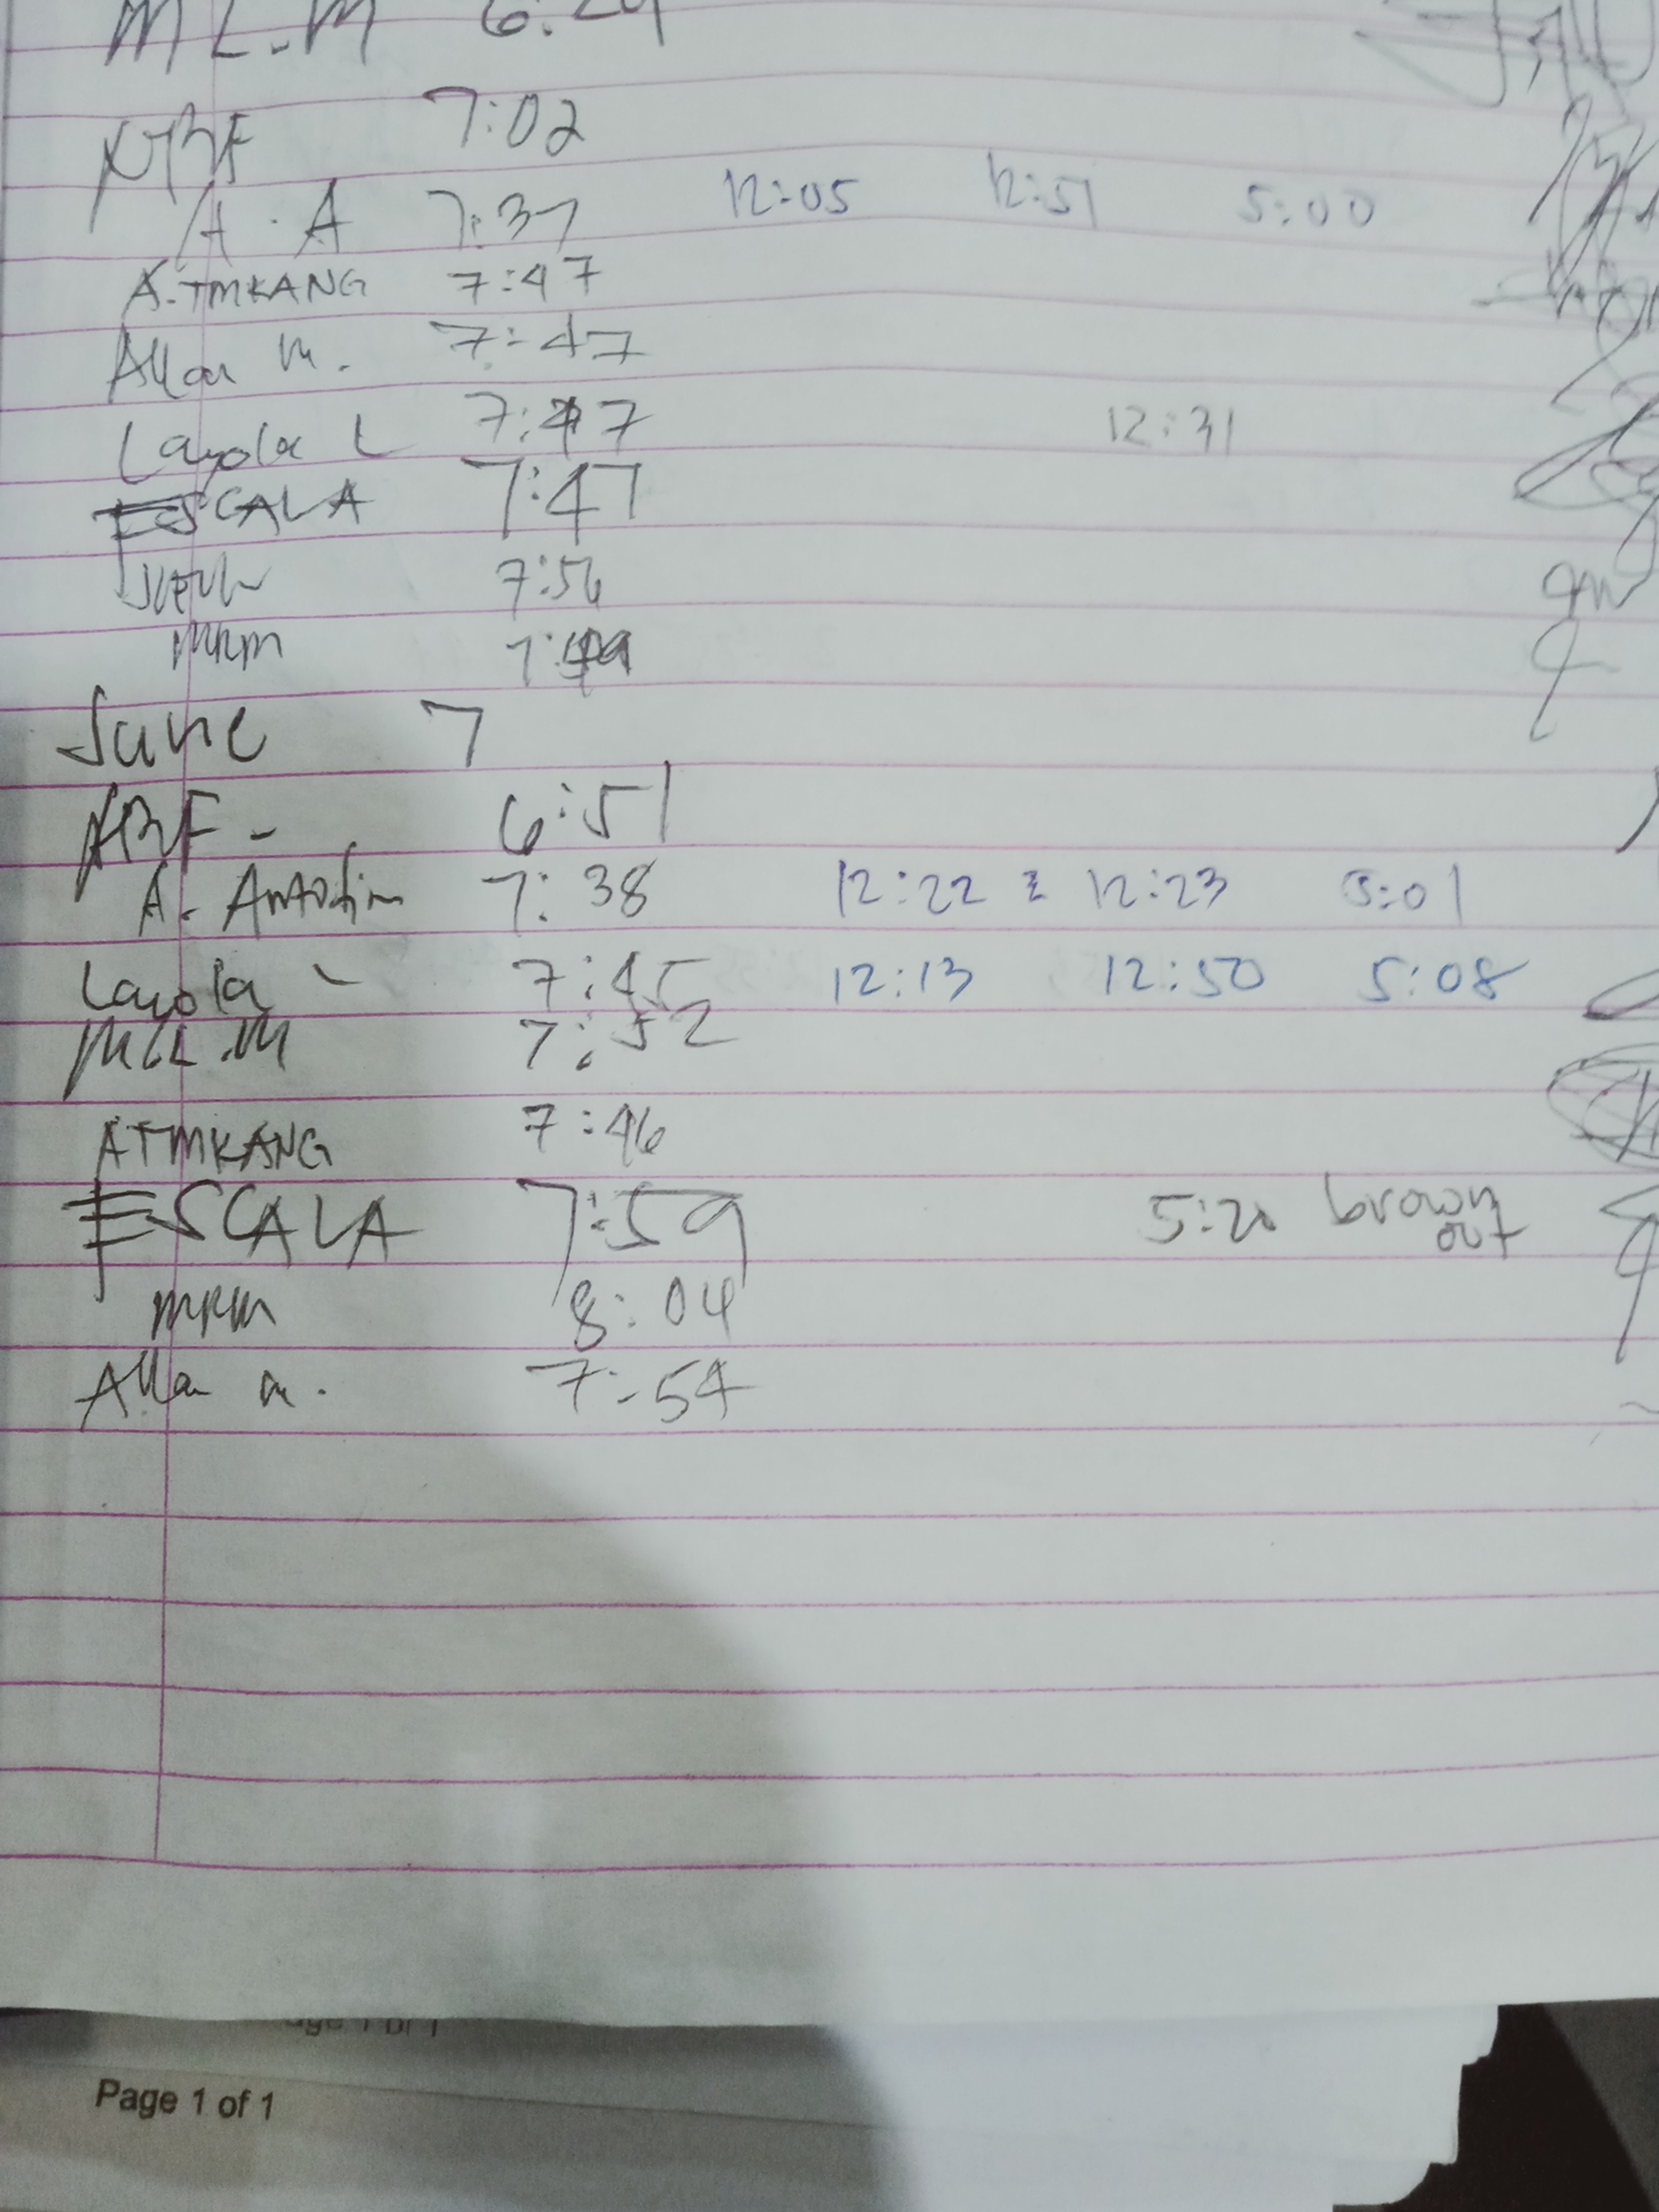 ML.M
7:02
A.A 7:37 12:05 12:51 5:00
A.TMKANG 7:47
Allan M. 7:47
Layola L 7:47 12:31
ESCALA 7:47
7:56
MRM 7:49
June 7
6:51
A. 7:38 12:22 12:23 5:01
Layola - 7:45 12:13 12:50 5:08
ML.M 7:52
ATMKANG 7:46
ESCALA 7:59 5:20 brown out
MRM 8:04
Allan M. 7:54
Page 1 of 1
Page 1 of 1